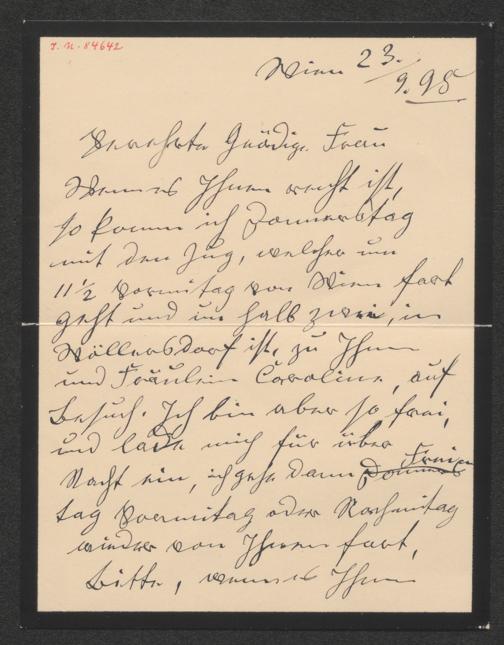 J. N. 84642
Wien 23.
9. 98
Verehrte Gnädige Frau
Wenn es Ihnen recht ist,
so komm ich Donnerstag
mit den Zug, welcher um
11½ Vormitag von Wien fort
geht und um halb zwei, in
Wöllersdorf ist, zu Ihnen
und Fräulein Caroline, auf
Besuch. Ich bin aber so frei,
und lade mich für über
Nacht ein, ich gehe dann Donners
Frei
tag Vormitag oder Nachmitag
wieder von Ihnen fort,
Bitte, wenn es Ihnen